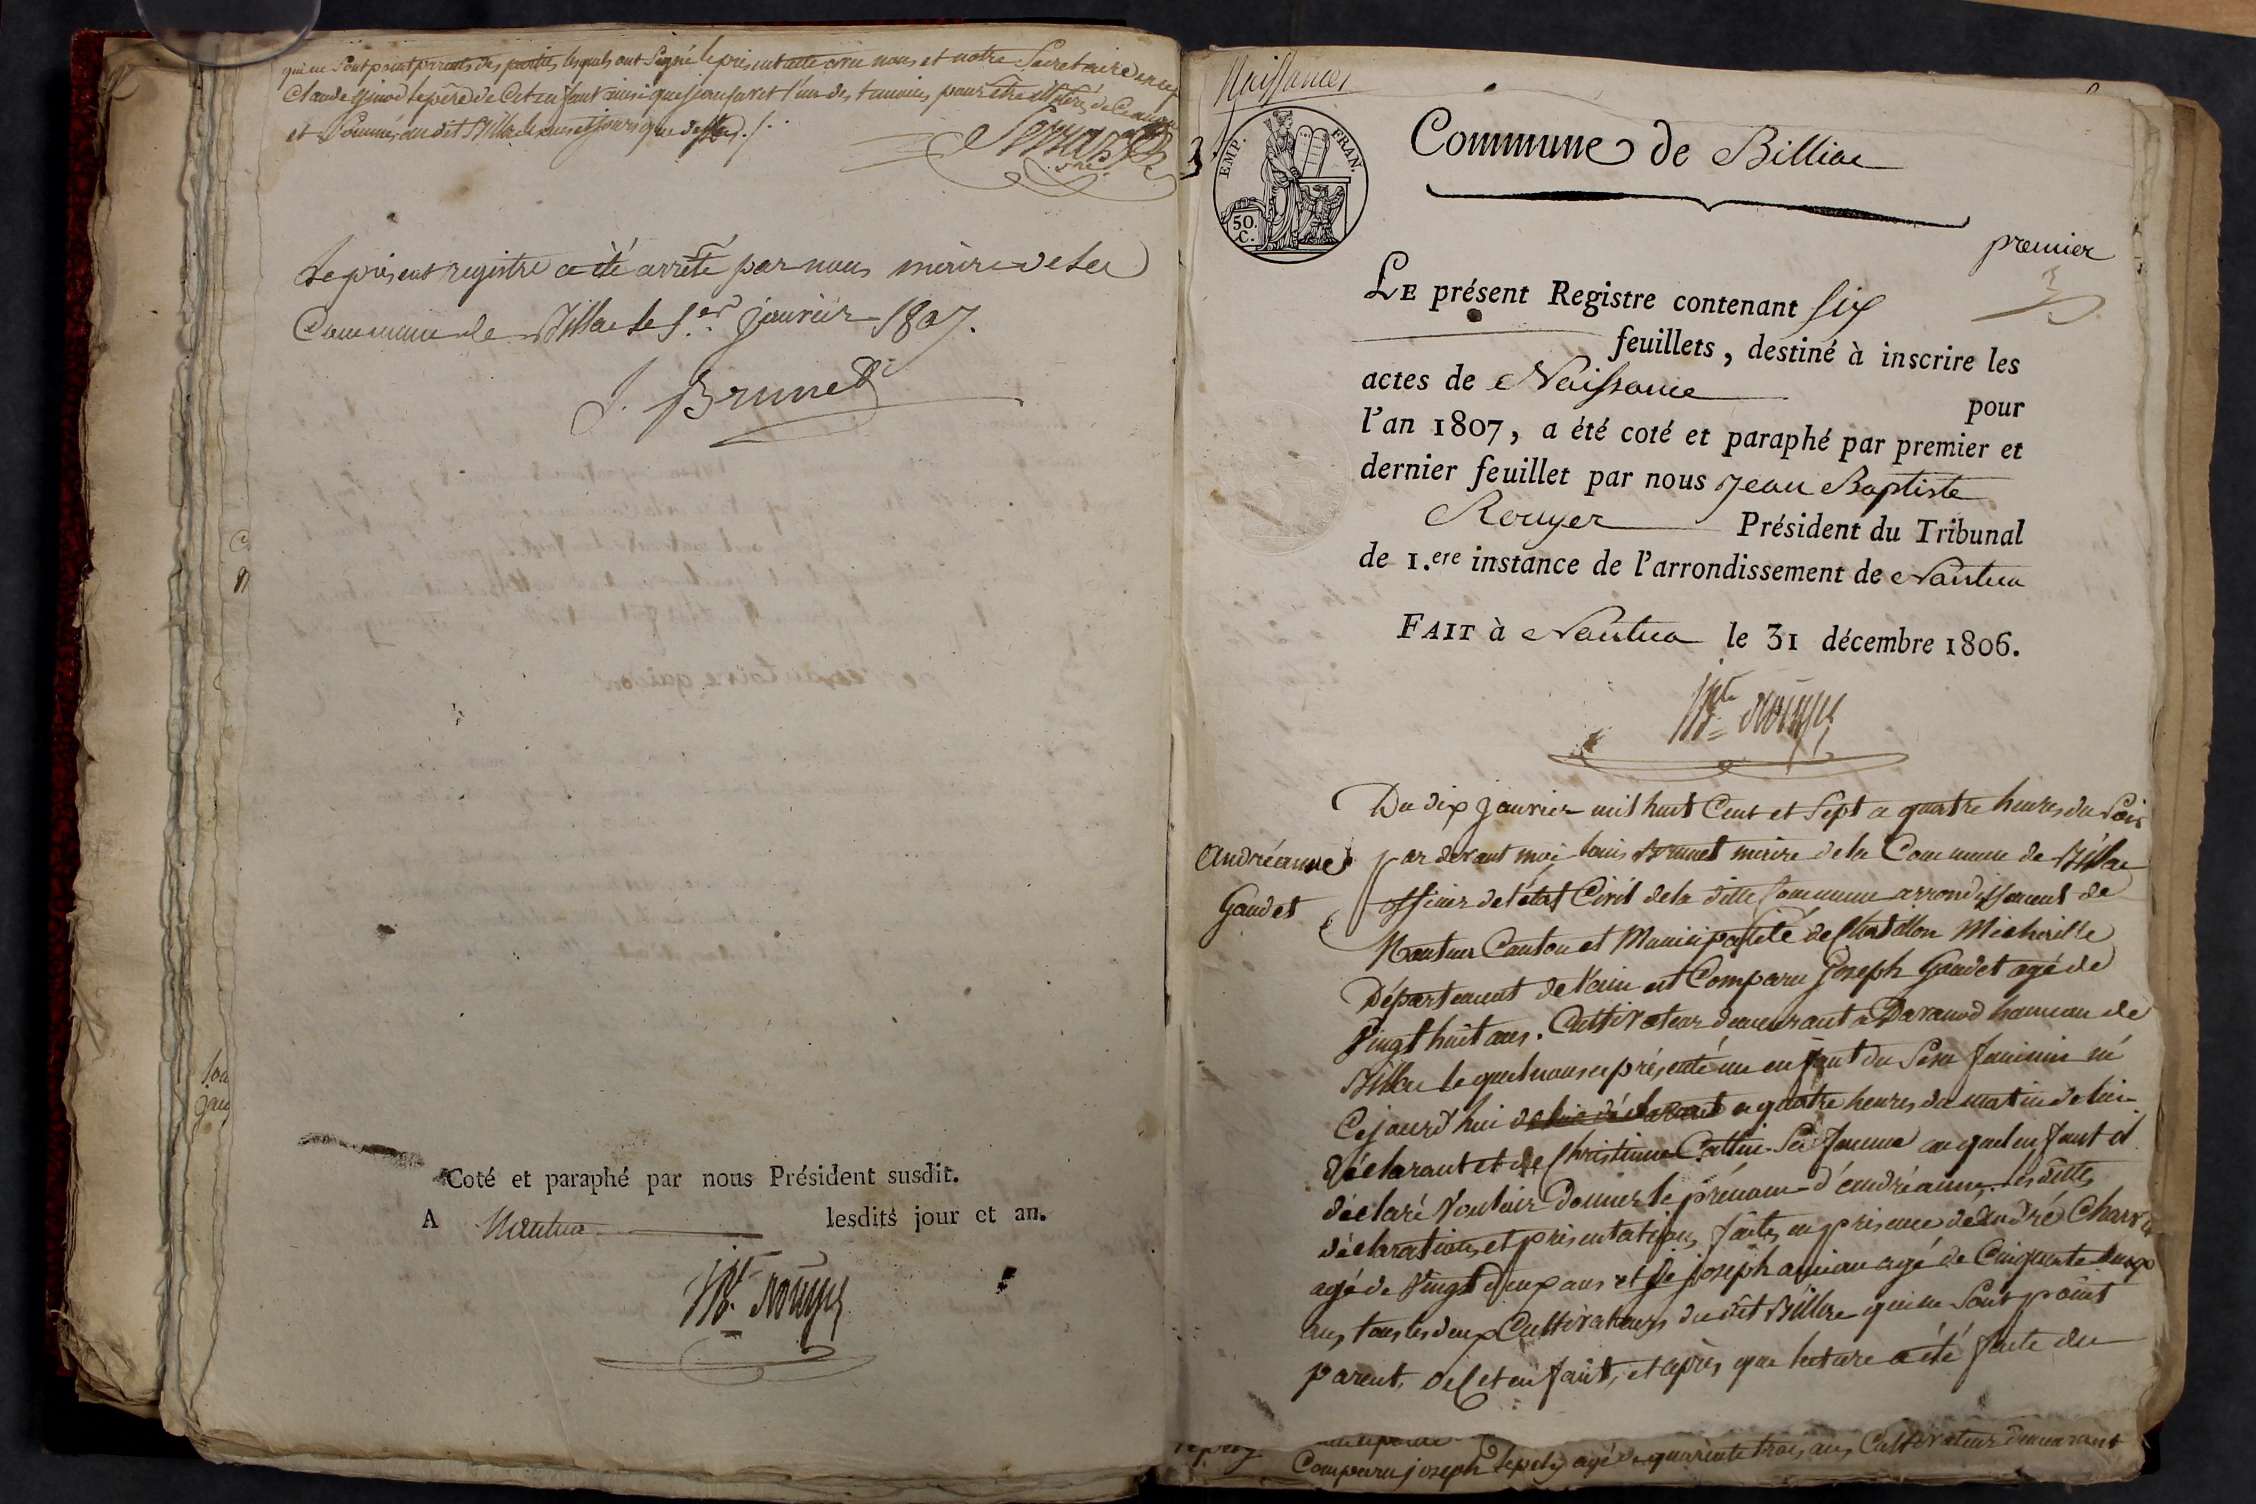 qui ne sont point parents des parties lesquels ont signé le présent acte avec nous et notre Secretaire
Claude le père de Cet enfant ainsi que l'un des temoins pour être de Ce
et au dit Billiac que dessus ./.
Le présent registre a été arrêté par nous maire de la
Commune de Billiac le 1.er janvier 1807.
J. Brunet
Coté et paraphé par nous Président susdit.
A Nantua lesdits jour et an.
Jn Bte Rouyer
Naissances
EMP. FRAN.
50. C.
Commune de Billiac
premier
LE présent Registre contenant six
feuillets, destiné à inscrire les
actes de Naissance pour
l'an 1807, a été coté et paraphé par premier et
dernier feuillet par nous Jean Baptiste
Rouyer Président du Tribunal
de 1.ere instance de l'arrondissement de Nantua
FAIT à Nantua le 31 décembre 1806.
Jn Bte Rouyer
Andréanne
Gaudet
Du dix janvier mil huit Cent et Sept a quatre heures du Soir
par devant moi louis Brunet maire de la Commune de Billiac
officier de l'état Civil de la ditte Commune arrondissement de
Nantua Canton et Municipalité de Chatillon Michaille
Département de l'ain est Comparu Joseph Gaudet agé de
Vingt huit ans. Cultivateur demeurant a Davanod hameau de
Billiac le quel nous a présenté un enfant du Sexe feminin né
Cejourd'hui de lui déclarant a quatre heures du matin de lui
déclarant et de Christinne Cattin Sa femme au quel enfant il
déclaré Vouloir Donner le prénom d'andréanne. les dittes
déclarations et présentations faites en présence de andré Charvet
agé de Vingt deux ans et de joseph agé de Cinquante deux
ans, tous les deux Cultivateurs du dit Billiac qui ne Sont point
parents de Cet enfant, et après que lecture a été faite du
Comparu joseph agé de quarente trois ans, Cultivateur demeurant